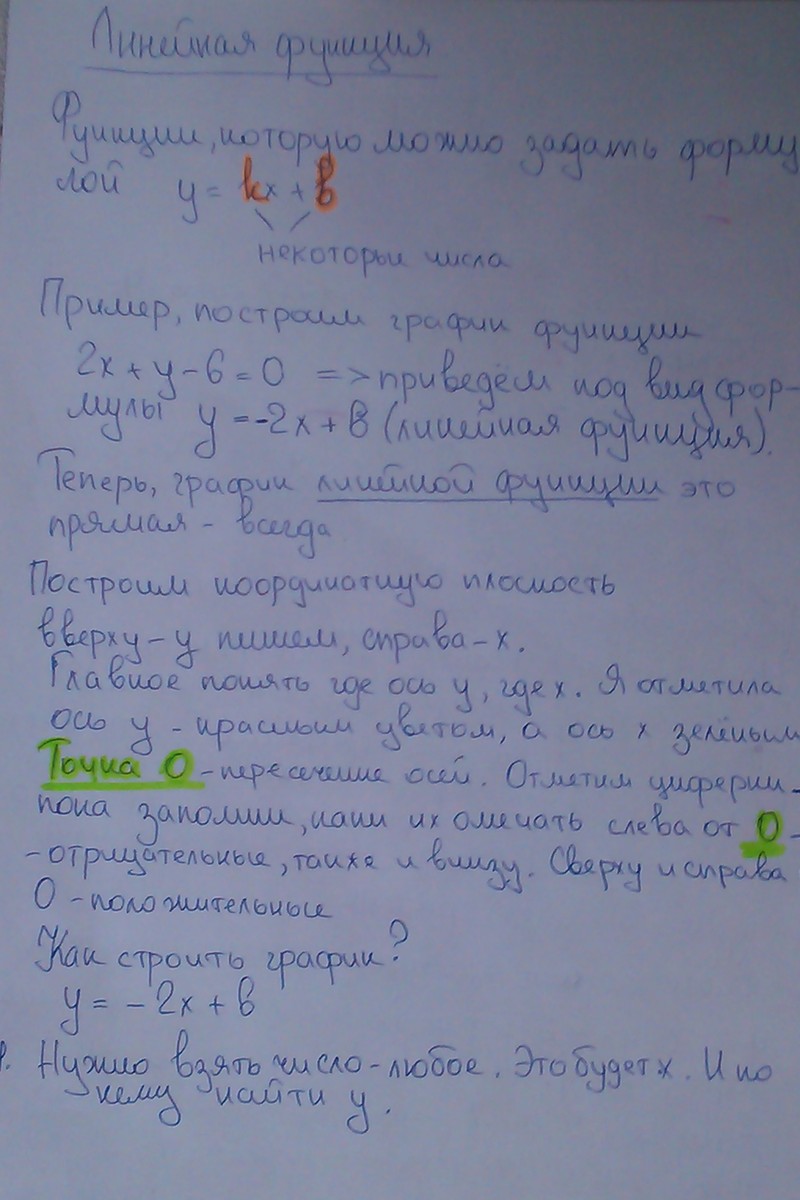 Линейная функция
Функции, которую можно задать форму
лой y = kx + b
некоторые числа
Пример, построим график функции
2x + y - 6 = 0 => приведём под вид фор-
мулы y = -2x + 6 (линейная функция).
Теперь, график линейной функции это
прямая - всегда
Построим координатную плоскость
вверху - y пишем, справа - x.
Главное понять где ось y, где x. Я отметила
ось y - красным цветом, а ось x зелёным
Точка O - пересечение осей. Отметим циферки -
пока запомни, как их омечать слева от O -
- отрицательные, также и внизу. Сверху и справа
O - положительные
Как строить график?
y = - 2x + 6
1. Нужно взять число - любое. Это будет x. И по
нему найти y.